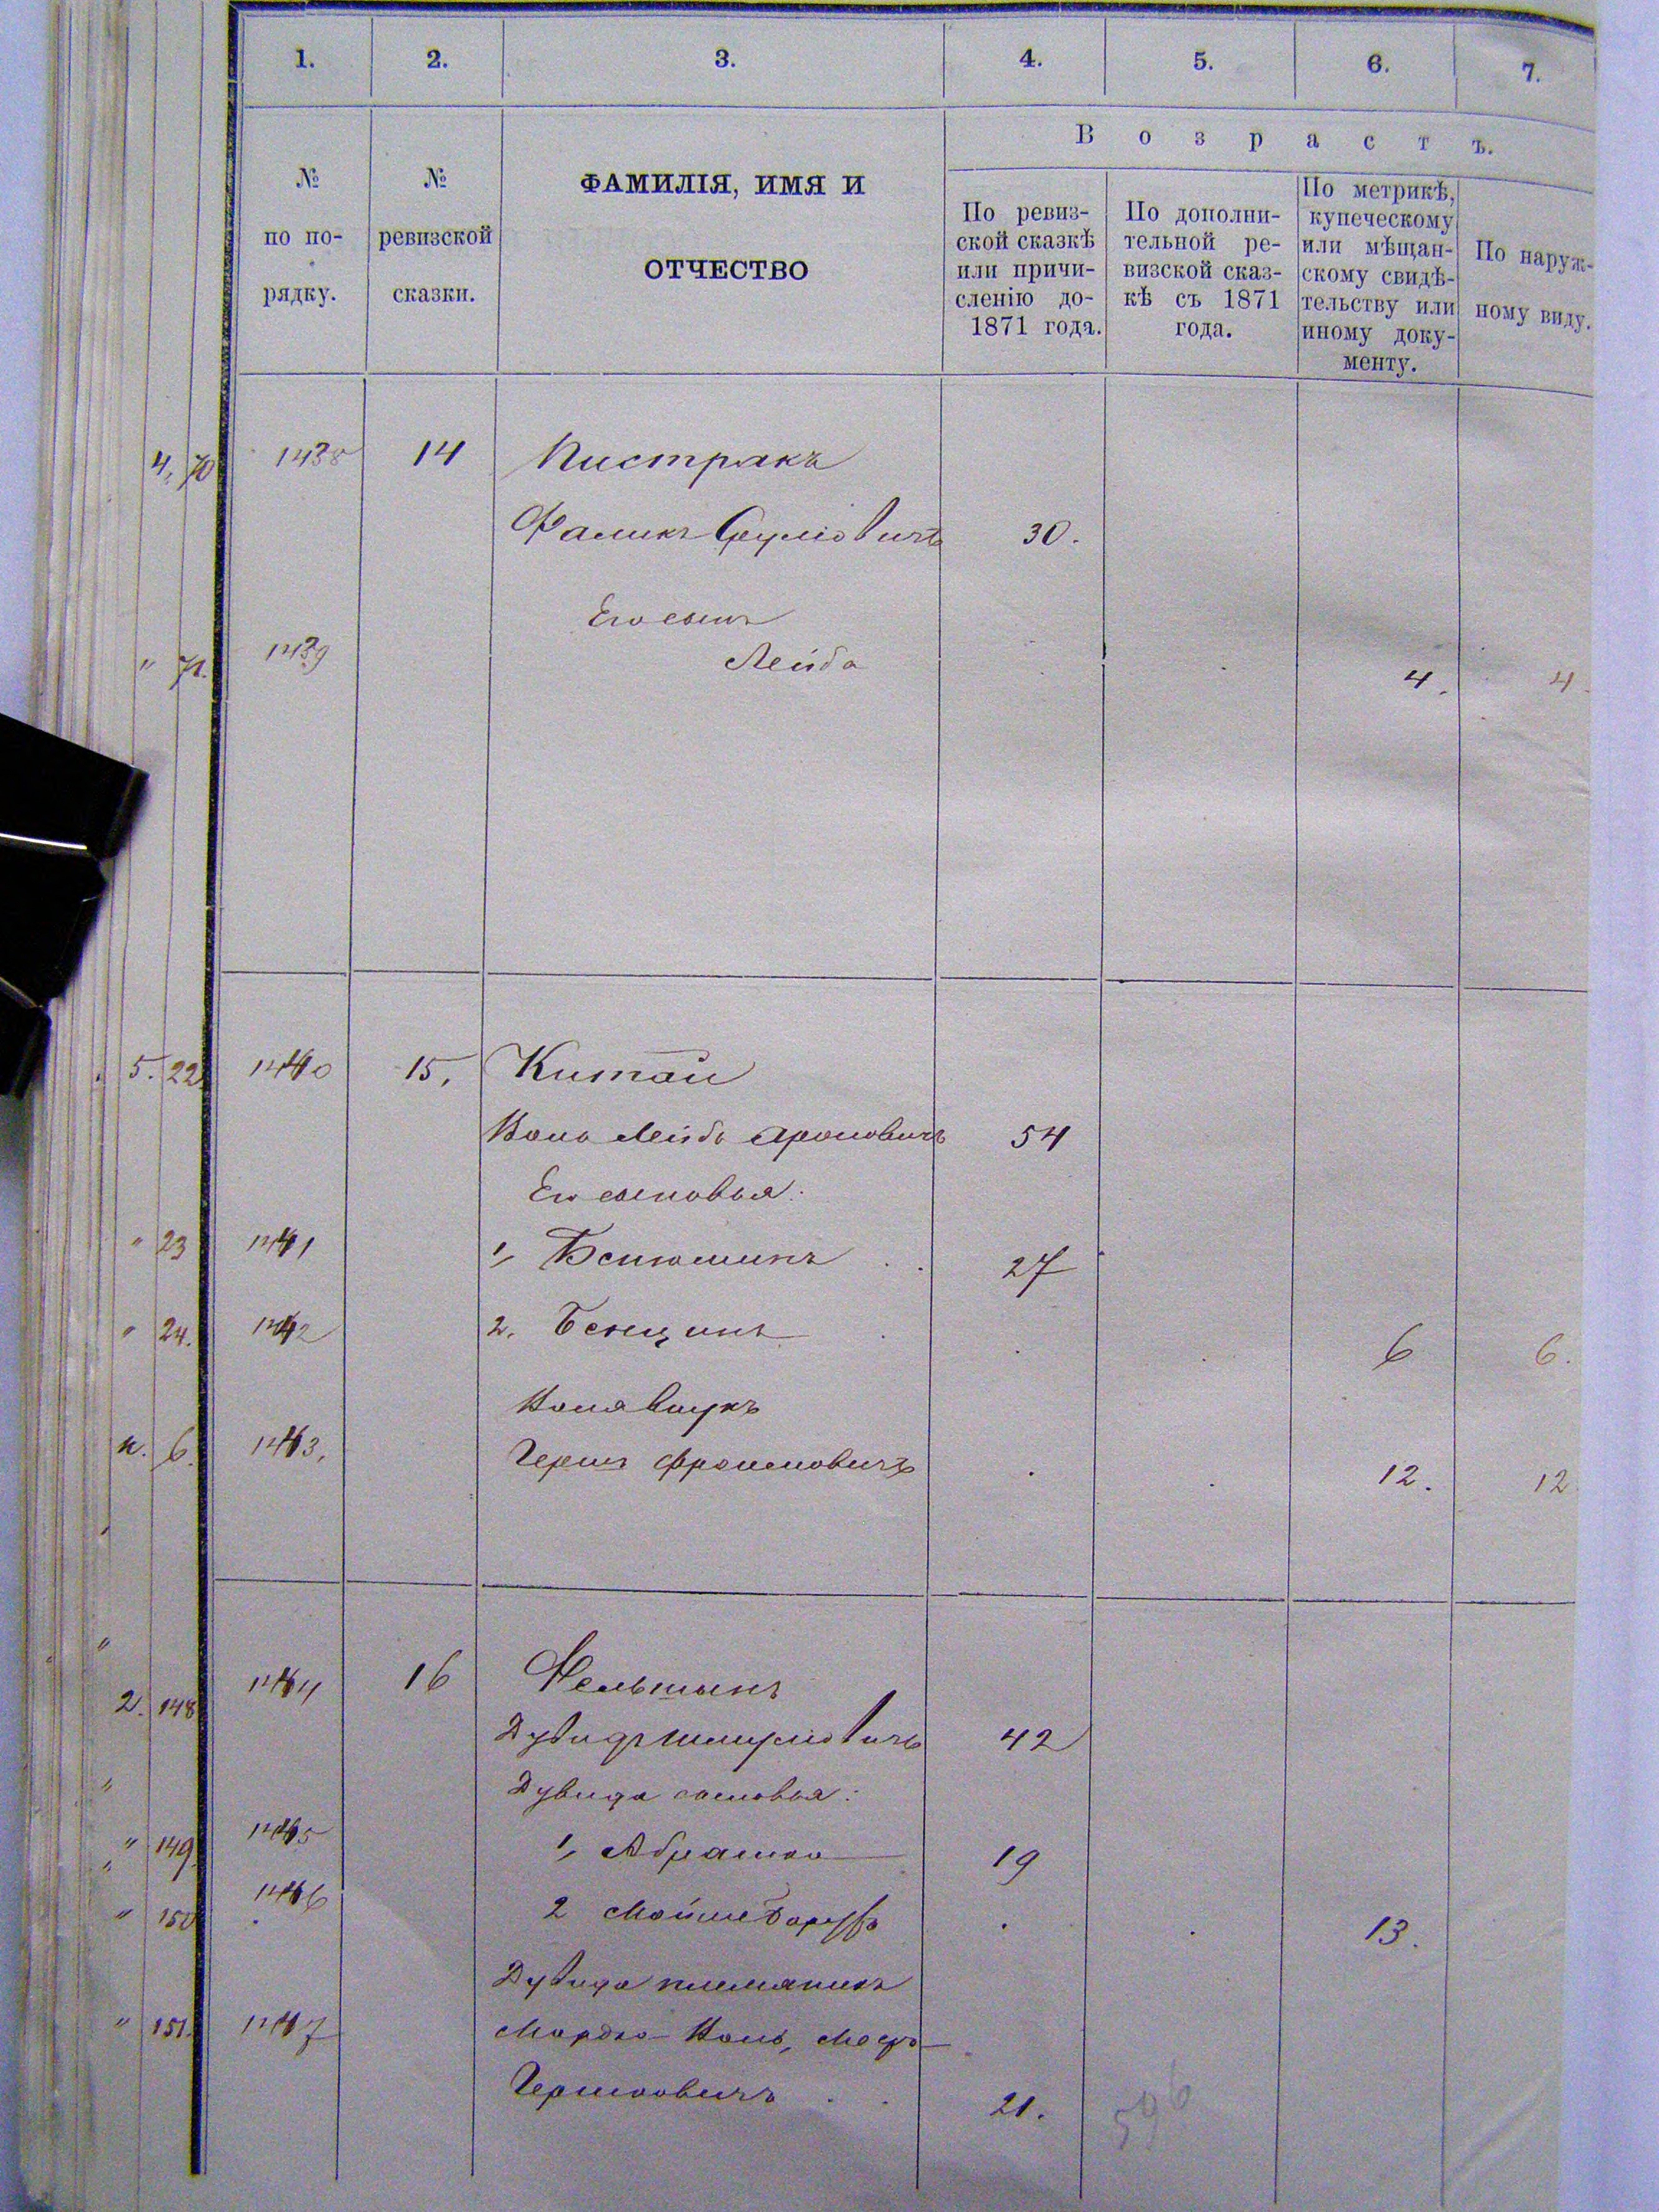 1. 2. 3. 4. 5. 6. 7.
Возрастъ.
№ по порядку.
№ ревизской сказки.
ФАМИЛІЯ, ИМЯ И
ОТЧЕСТВО
По ревиз-
ской сказкѣ
или причи-
сленію до-
1871 года.
По дополни-
тельной ре-
визской сказ-
кѣ съ 1871
года.
По метрикѣ,
купеческому
или мѣщан-
скому свидѣ-
тельству или
иному доку-
менту.
По наруж-
ному виду.
4. 70 1438 14 Пистракъ
Фаликъ Сруліовичъ 30.
Его сынъ
" 71. 1439 Лейба 4. 4.
5. 22 1440 15, Китай
Лейба Ароновичъ 54
Его сыновья:
" 23 1441 1, Бенюминъ 27
" 24. 1442 2. Бенцинъ 6 6.
внукъ
н. 6. 1443, Гершъ Фроимовичъ 12. 12
2. 148 1444 16 Фельшинъ
Дувидъ Шмуліовичъ 42
Дувида сыновья:
" 149. 1445 1, Абрамко 19
" 150 1446 2 Мойше Борухъ 13.
Дувида племяникъ
" 151. 1447 Мордко
Гершковичъ 21.
596